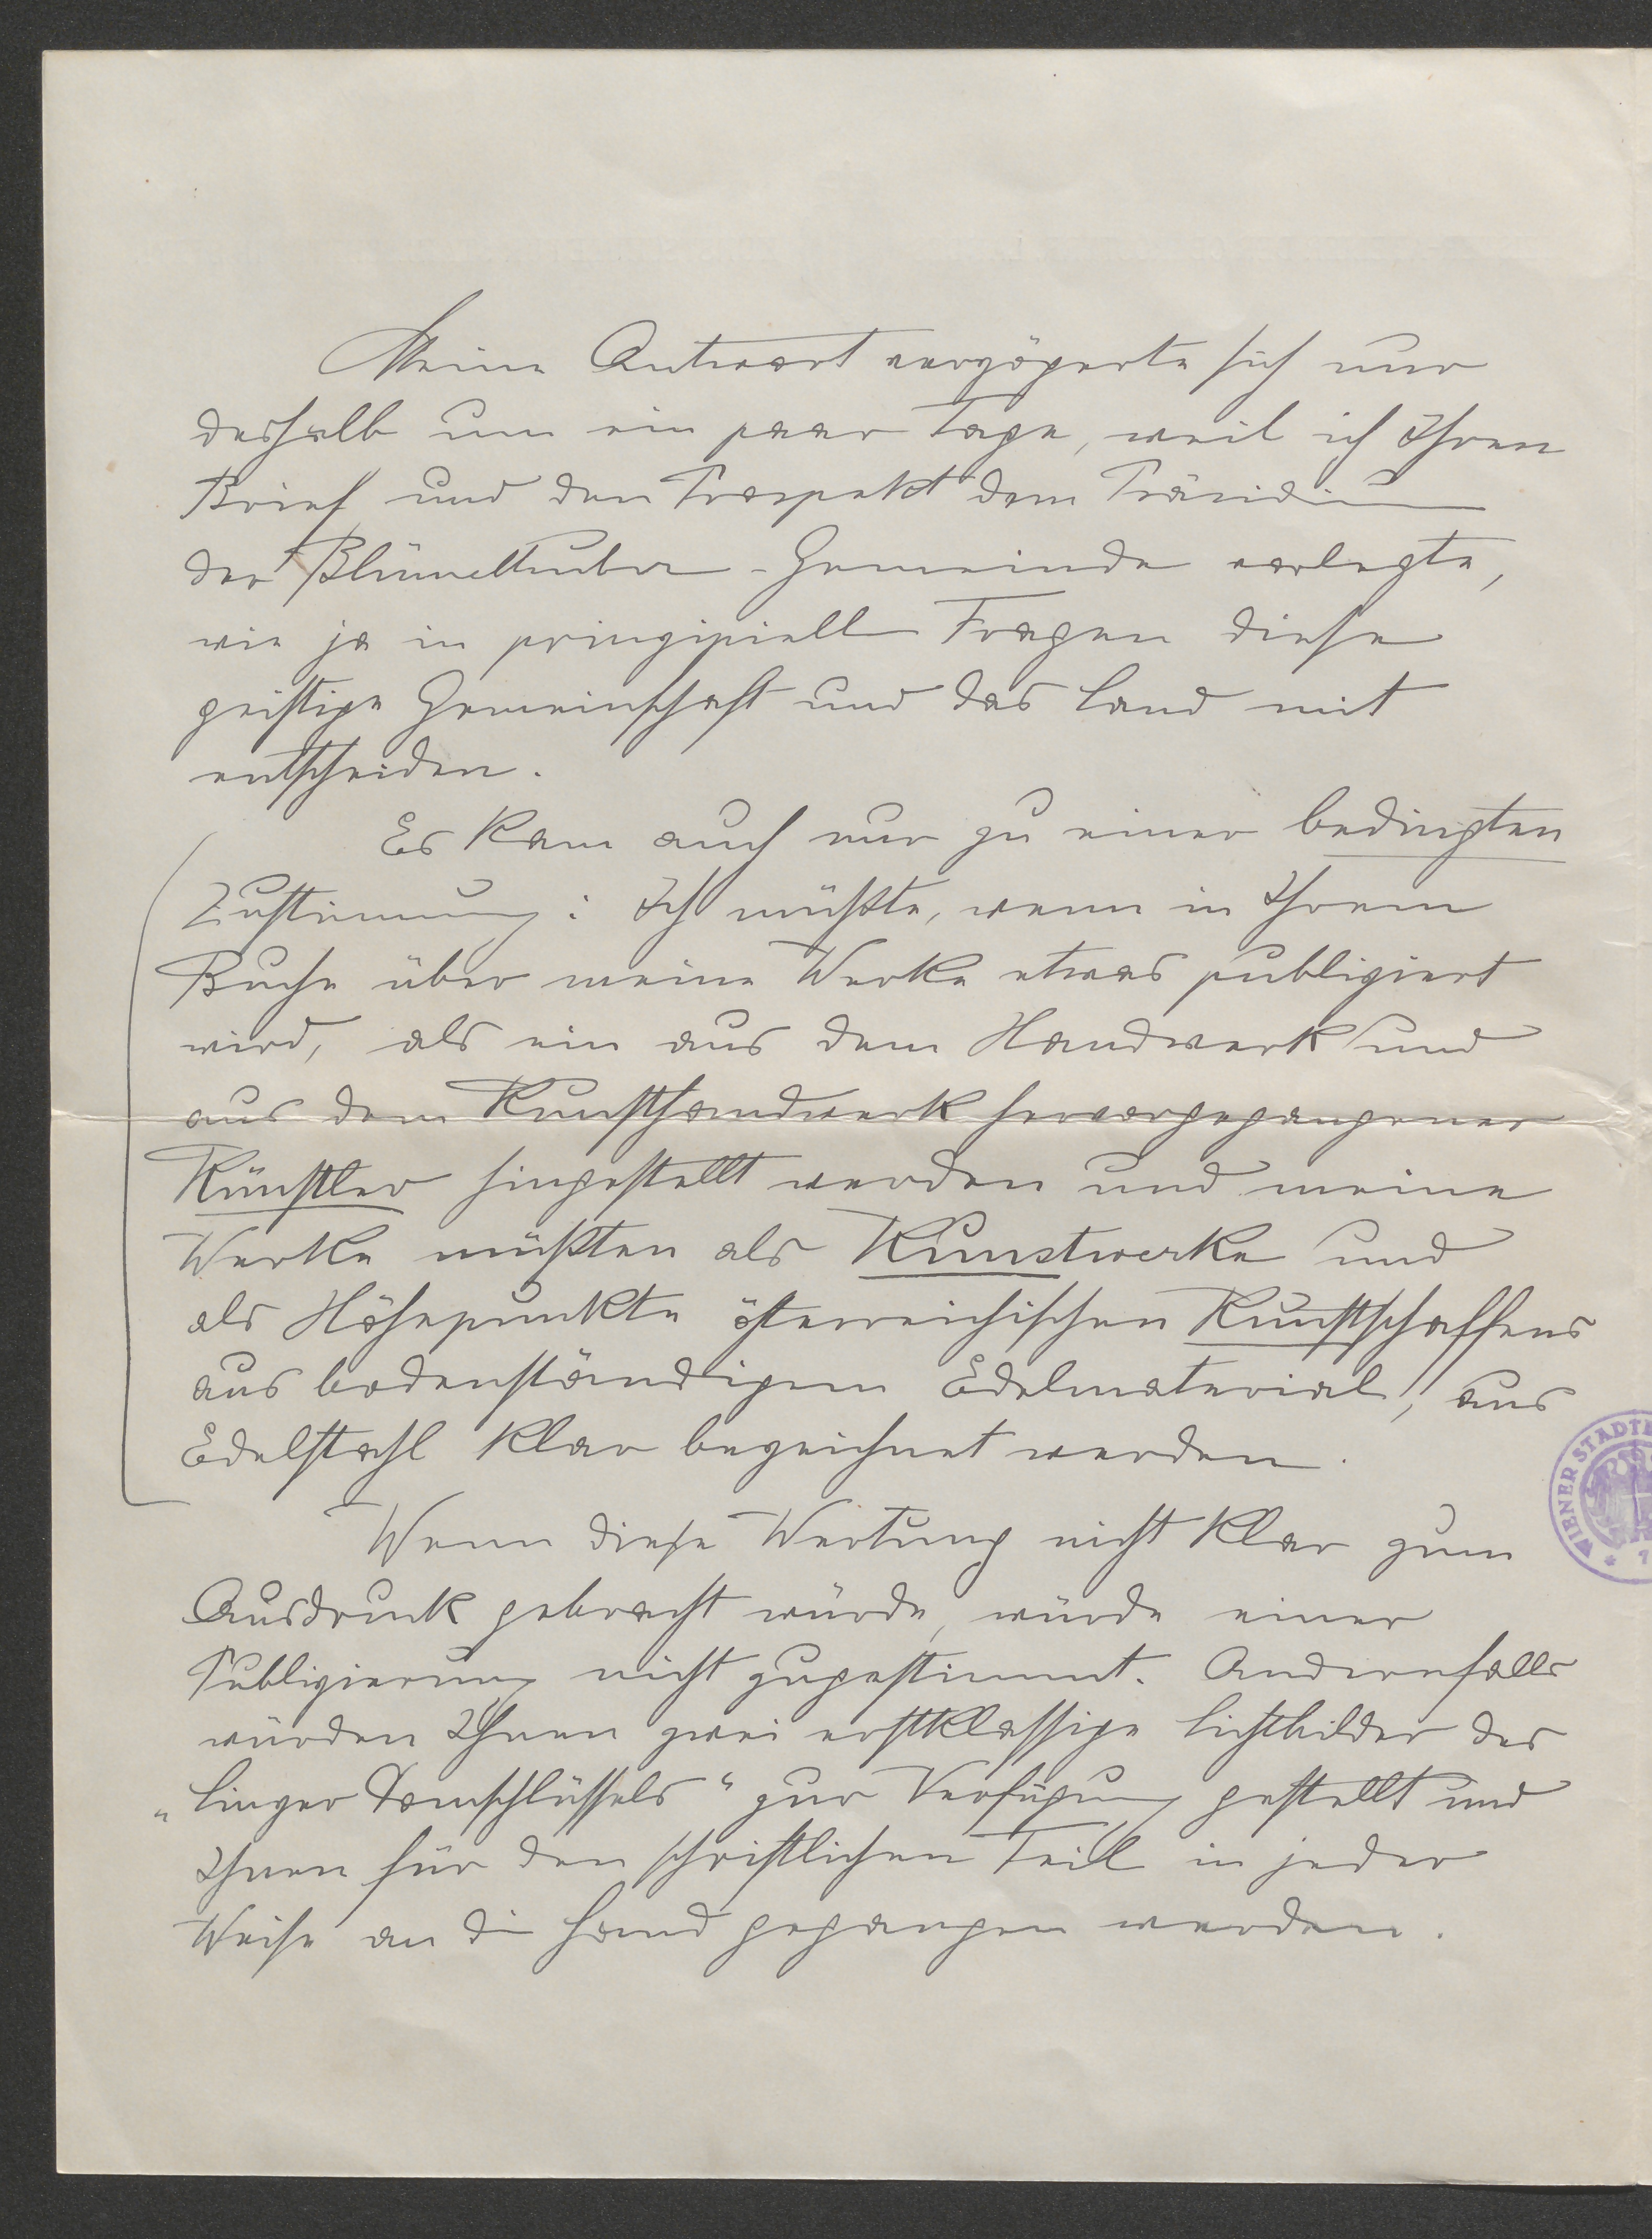 Meine Antwort verzögerte sich nur
deshalb um ein paar Tage, weil ich Ihren
Brief und den Prospekt dem Präsidium
der Blümelhuber-Gemeinde vorlegte,
wie ja in prinzipiellen Fragen diese
geistige Gemeinschaft und das Land mit
entscheiden.
Es kam auch nur zu einer bedingten
Zustimmung: Ich müßte, wenn in Ihrem
Buche über meine Werke etwas publiziert
wird, als ein aus dem Handwerk und
aus dem Kunsthandwerk hervorgegangener
Künstler hingestellt werden und meine
Werke müßten als Kunstwerke und
als Höhepunkte österreichischen Kunstschaffens
aus bodenständigem Edelmaterial, aus
Edelstahl klar bezeichnet werden.
Wenn diese Wertung nicht klar zum
Ausdruck gebracht würde, würde einer
Publizierung nicht zugestimmt. Andernfalls
würden Ihnen zwei erstklassige Lichtbilder des
„Linzer Domschlüssels" zur Verfügung gestellt und
Ihnen für den schriftlichen Teil in jeder
Weise an die Hand gegangen werden.
WIENER STADTB